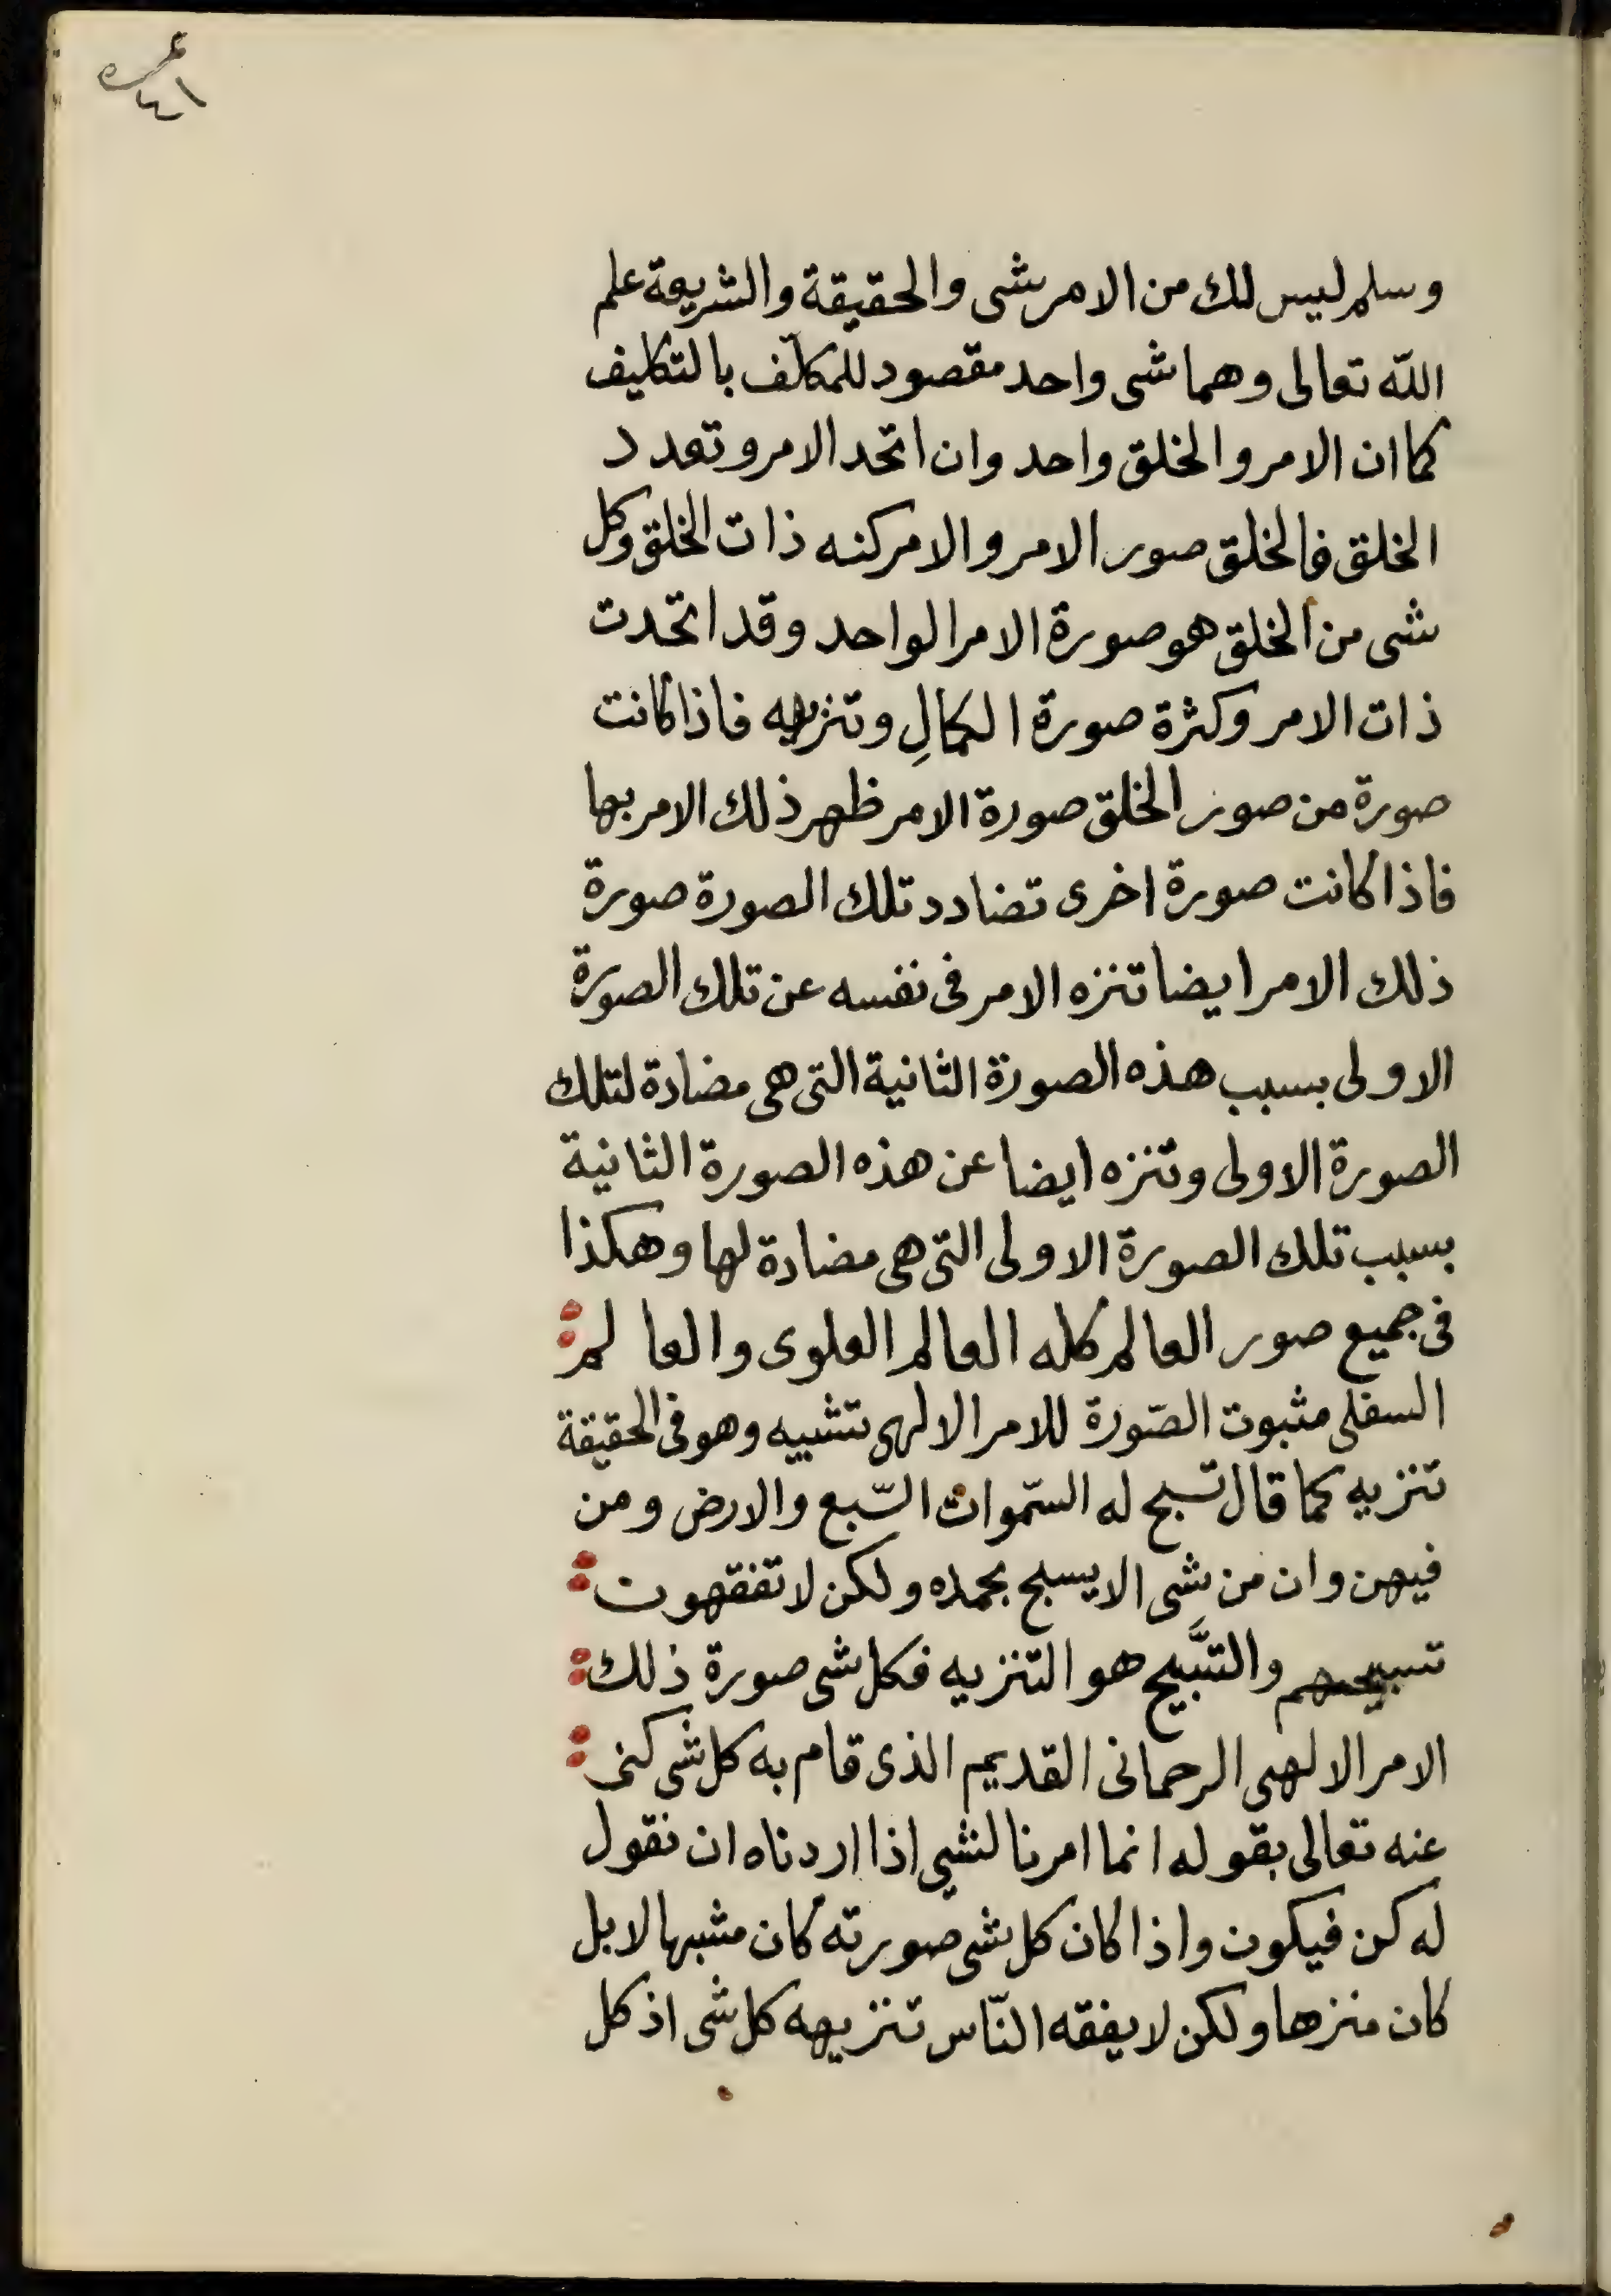 نمره
٤١
وسلم ليس لك من الامر شى والحقيقة والشريعة علم
اللّه تعالى وهما شى واحد مقصود للمكلّف بالتكليف
كما ان الامر والخلق واحد وان اتحد الامر وتعدد
الخلق فالخلق صور الامر والامر كنه ذات الخلق وكل
شى من الخلق هو صورة الامر الواحد وقد اتحدت
ذات الامر وكثرة صورة الكمالِ وتنزيهه فاذا كانت
صورة من صور الخلق صورة الامر ظهر ذلك الامر بها
فاذا كانت صورة اخرى تضادد تلك الصورة صورة
ذلك الامر ايضا تنزه الامر فى نفسه عن تلك الصورة
الاولى بسبب هذه الصورة الثانية التى هى مضادة لتلك
الصورة الاولى وتنزه ايضا عن هذه الصورة الثانية
بسبب تلك الصورة الاولى التى هى مضادة لها وهكذا
فى جميع صور العالم كله العالم العلوى والعالم
السفلى مثبوت الصّورة للامر الالهى تشبيه وهو فى الحقيقة
تنزيه كما قال تسبح له السّموات السّبع والارض ومن
فيهن وان من شى الا يسبح بحمده ولكن لا تفقهون
تسبيحهم والتسَّبيح هو التنزيه فكل شى صورة ذلك
الامر الالهى الرحمانى القديم الذى قام به كل شى كنى
عنه تعالى بقوله انما امرنا لشىء اذا اردناه ان نقول
له كن فيكون واذا كان كل شى صورته كان مشبها لا بل
كان منزها ولكن لا يفقه النّاس تنزيهه كل شى اذ كل